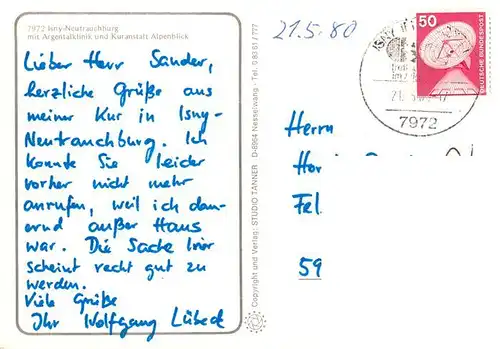 7972 Isny-Neutrauchburg
mit Argentalklinik und Kuranstalt Alpenblick
Lieber Herr Sander,
herzliche Grüße aus
meiner Kur in Isny-
Neutrauchburg. Ich
konnte Sie leider
vorher nicht mehr
anrufen, weil ich dau-
ernd außer Haus
war. Die Sache hier
scheint recht gut zu
werden.
Viele Grüße
Ihr Wolfgang Lübeck
Copyright und Verlag: STUDIO TANNER D-8964 Nesselwang - Tel. 0 83 61 / 777
21.5.80
ISNY
7972
50
DEUTSCHE BUNDESPOST
Herrn
Hor
Fel
59